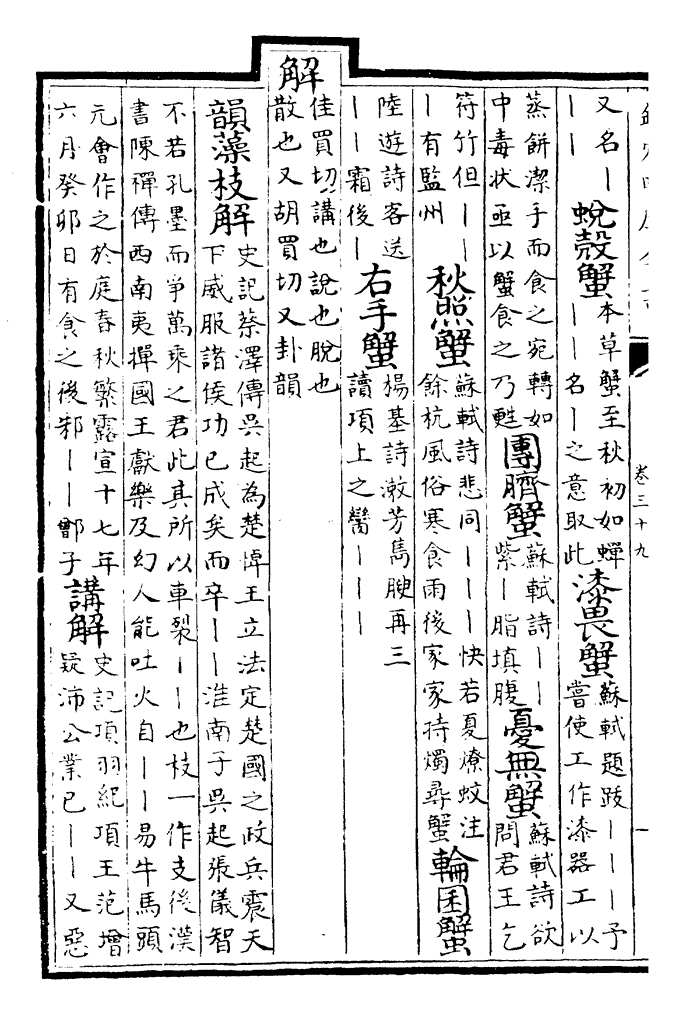 卷三十九
一
又名丨
丨丨
蛻殼蟹
本草蟹至秋初如蟬
丨丨名丨之意取此
漆畏蟹
蘇軾題跋丨丨丨予
嘗使工作漆器工以
蒸餅潔手而食之宛轉如
中毒状亟以蟹食之乃甦
團臍蟹
蘇軾詩丨丨
紫丨脂填腹
憂無蟹
蘇軾詩欲
問君王乞
符竹但丨丨
丨有監州
秋照蟹
蘇軾詩悲同丨丨丨快若夏燎蚊注
餘杭風俗寒食雨後家家持燭尋蟹
輪囷蟹
陸遊詩客送
丨丨霜後丨
右手蟹
楊基詩漱芳雋腴再三
讀項上之臠丨丨丨
解
佳買切講也說也脫也
散也又胡買切又卦韻
韻藻枝解
史記蔡澤傳吳起為楚悼王立法定楚國之政兵震天
下威服諸侯功已成矣而卒丨丨淮南子吳起張儀智
不若孔墨而爭萬乘之君此其所以車裂丨丨也枝一作支後漢
書陳禪傳西南夷撣國王獻樂及幻人能吐火自丨丨易牛馬頭
元會作之於庭春秋繁露宣十七年
六月癸卯日有食之後邾丨丨鄫子
講解
史記項羽紀項王范增
疑沛公業已丨丨又惡